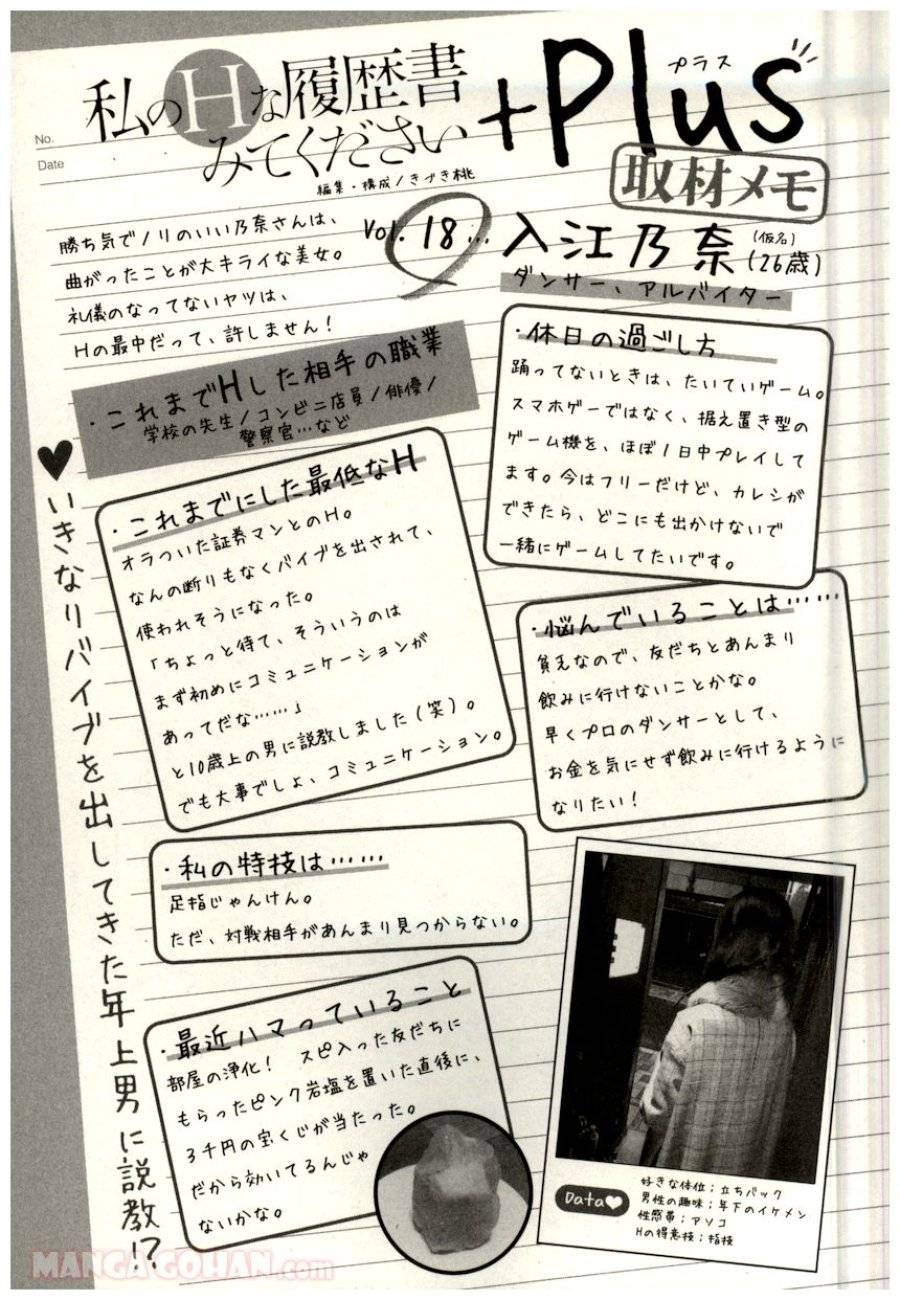 No.
Date
私のHな履歴書
みてください
+Plus
プラス
編集・構成/きづき桃
取材メモ
勝ち気でノリのいい乃奈さんは、
曲がったことが大キライな美女。
礼儀のなってないヤツは、
Hの最中だって、許しません!
Vol. 18…
入江乃奈
(仮名)
(26歳)
ダンサー、アルバイター
・これまでHした相手の職業
学校の先生/コンビニ店員/俳優/
警察官…など
・休日の過ごし方
踊ってないときは、たいていゲーム。
スマホゲーではなく、据え置き型の
ゲーム機を、ほぼ1日中プレイして
ます。今はフリーだけど、カレシが
できたら、どこにも出かけないで
一緒にゲームしてたいです。
♥いきなりバイブを出してきた年上男に説教!?
・これまでにした最低なH
オラついた証券マンとのH。
なんの断りもなくバイブを出されて、
使われそうになった。
「ちょっと待て、そういうのは
まず初めにコミュニケーションが
あってだな……」
と10歳上の男に説教しました(笑)。
でも大事でしょ、コミュニケーション。
・悩んでいることは……
貧乏なので、友だちとあんまり
飲みに行けないことかな。
早くプロのダンサーとして、
お金を気にせず飲みに行けるように
なりたい!
・私の特技は……
足指じゃんけん。
ただ、対戦相手があんまり見つからない。
・最近ハマっていること
部屋の浄化! スピ入った友だちに
もらったピンク岩塩を置いた直後に、
3千円の宝くじが当たった。
だから効いてるんじゃ
ないかな。
Data♥
好きな体位;立ちバック
男性の趣味;年下のイケメン
性感帯;アソコ
Hの得意技;指技
MANGAGOHAN.com